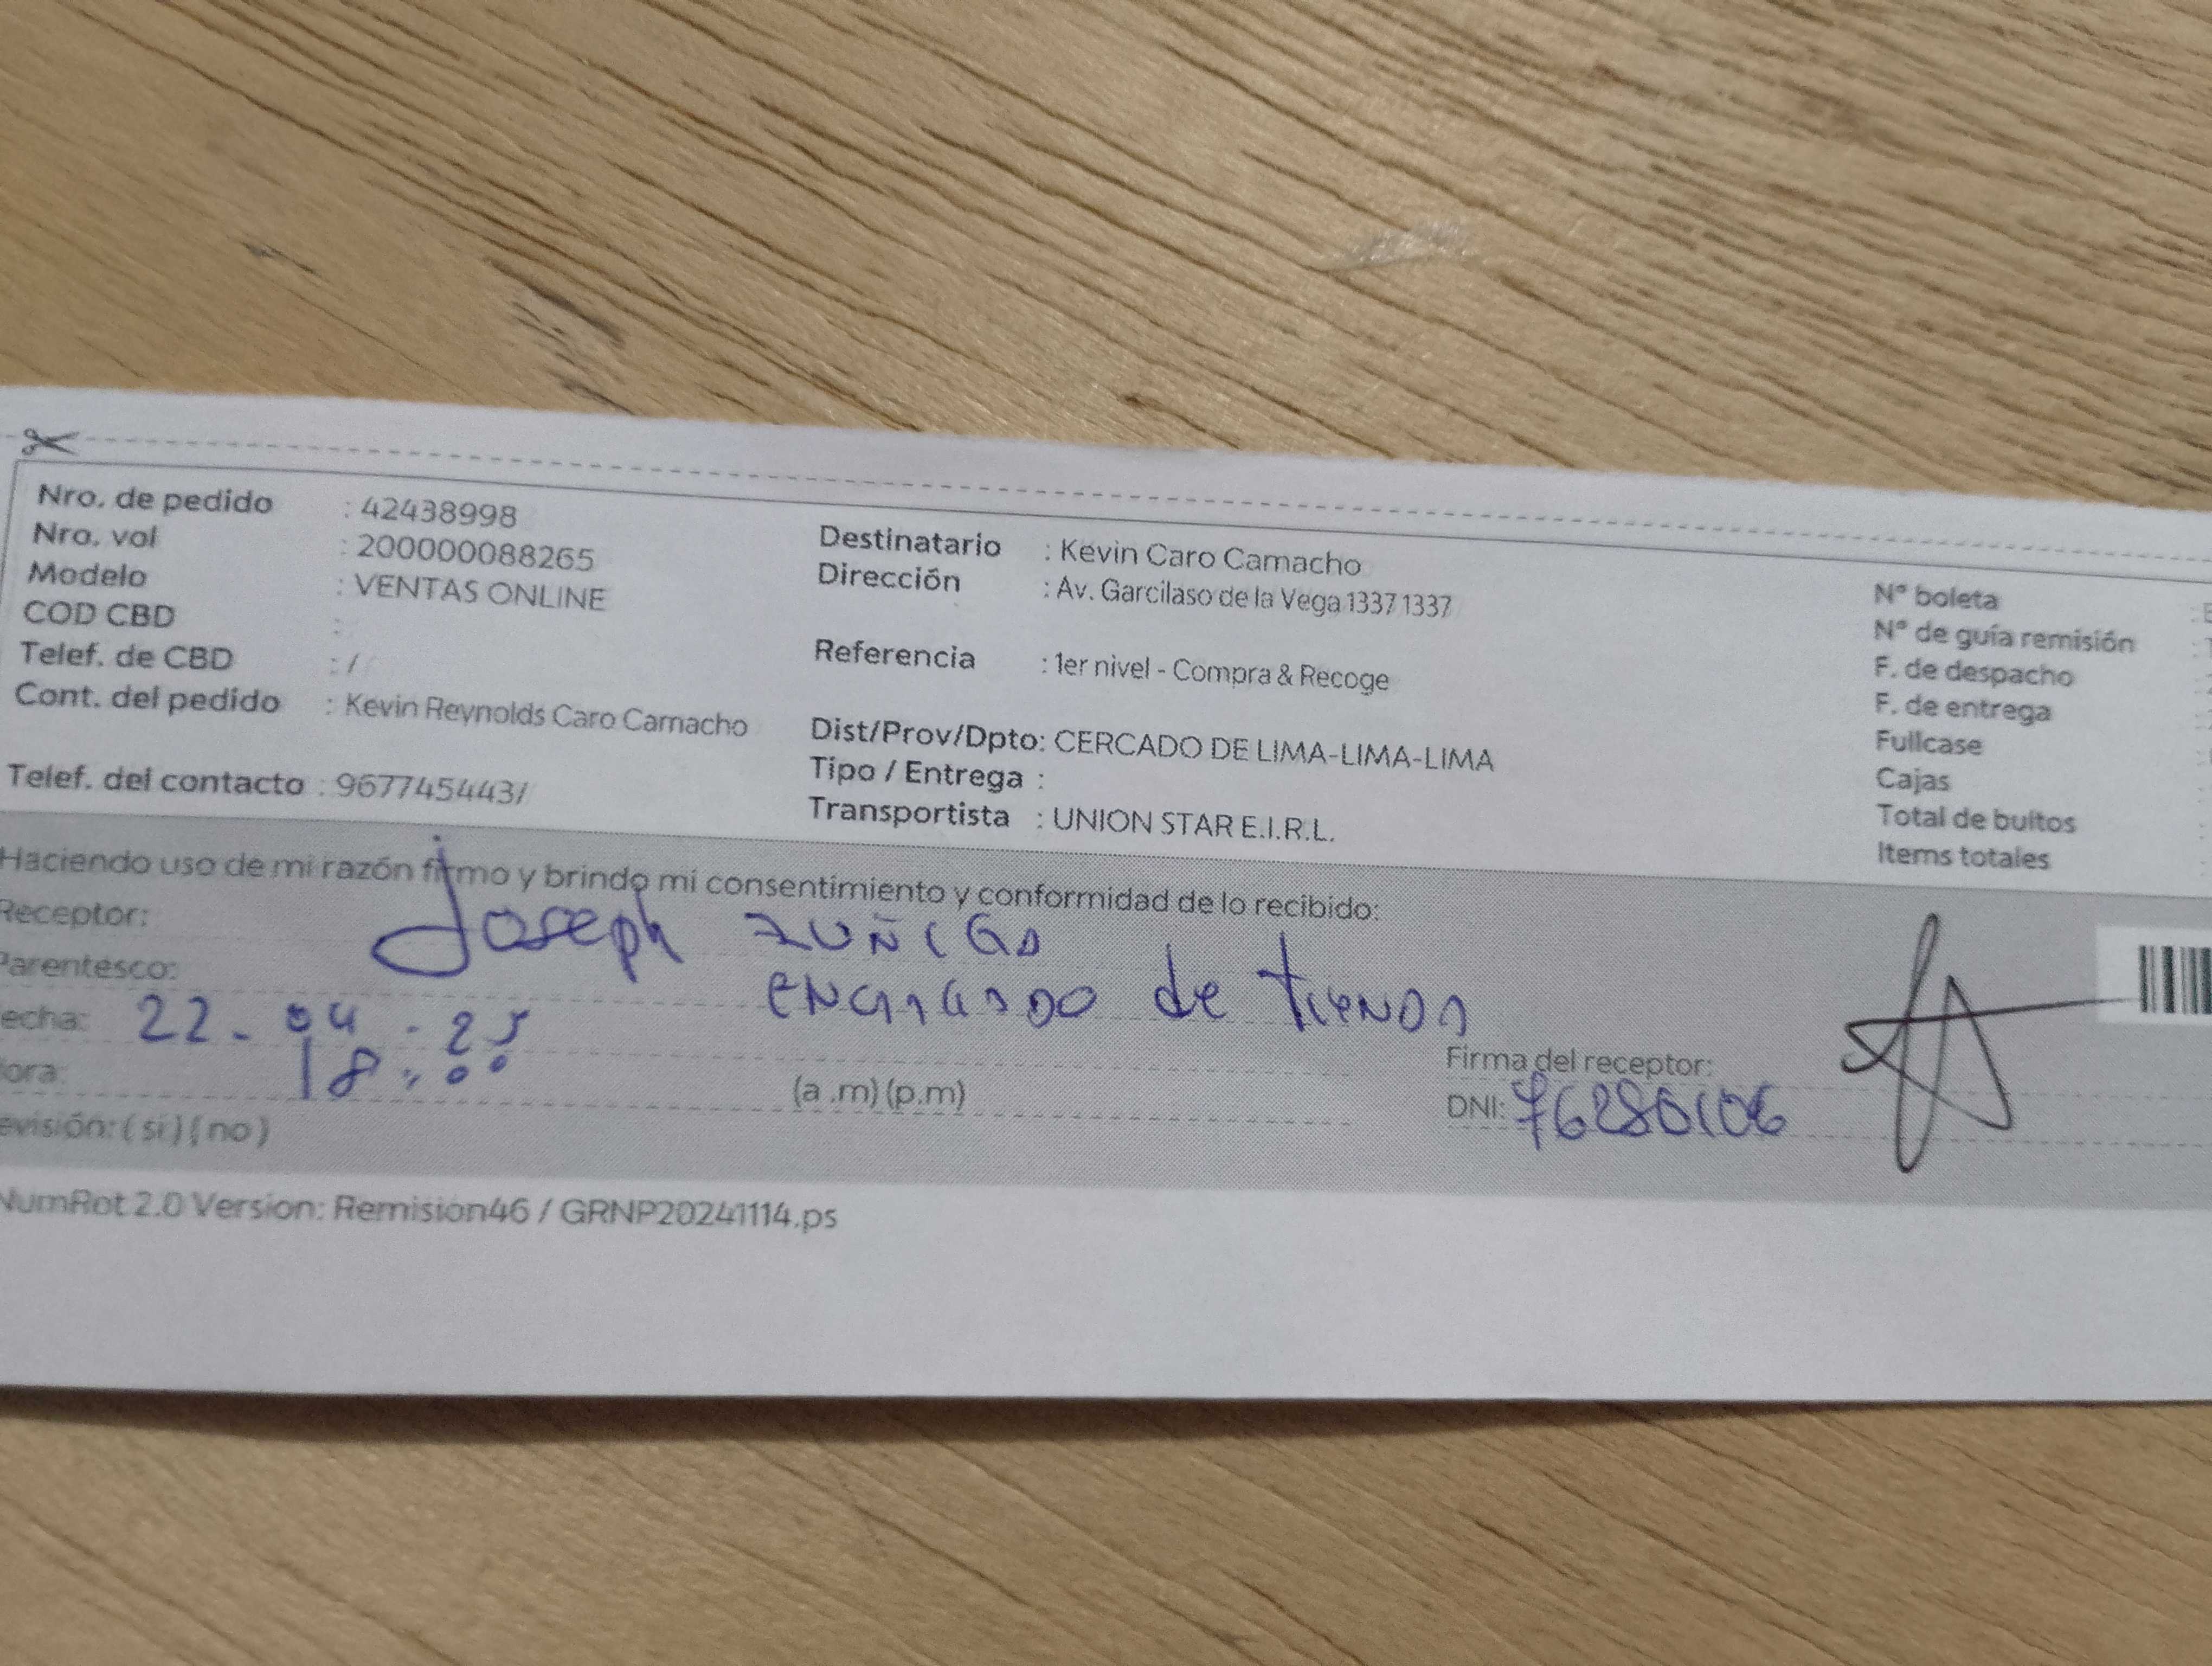 Nro. de pedido : 42438998
Nro. vol : 200000088265
Modelo : VENTAS ONLINE
COD CBD :
Telef. de CBD : /
Cont. del pedido : Kevin Reynolds Caro Camacho
Telef. del contacto : 967745443/
Destinatario : Kevin Caro Camacho
Dirección : Av. Garcilaso de la Vega 1337 1337
Referencia : 1er nivel - Compra & Recoge
Dist/Prov/Dpto: CERCADO DE LIMA-LIMA-LIMA
Tipo / Entrega :
Transportista : UNION STAR E.I.R.L.
N° boleta
N° de guía remisión
F. de despacho
F. de entrega
Fullcase
Cajas
Total de bultos
Items totales
Haciendo uso de mi razón firmo y brindo mi consentimiento y conformidad de lo recibido:
Receptor: Joseph ZUÑIGA
Parentesco: encargado de tienda
echa: 22-04-25
ora: 18:00 (a .m) (p.m)
evisión: ( si ) ( no )
Firma del receptor:
DNI: 76280106
NumRot 2.0 Version: Remision46 / GRNP20241114.ps